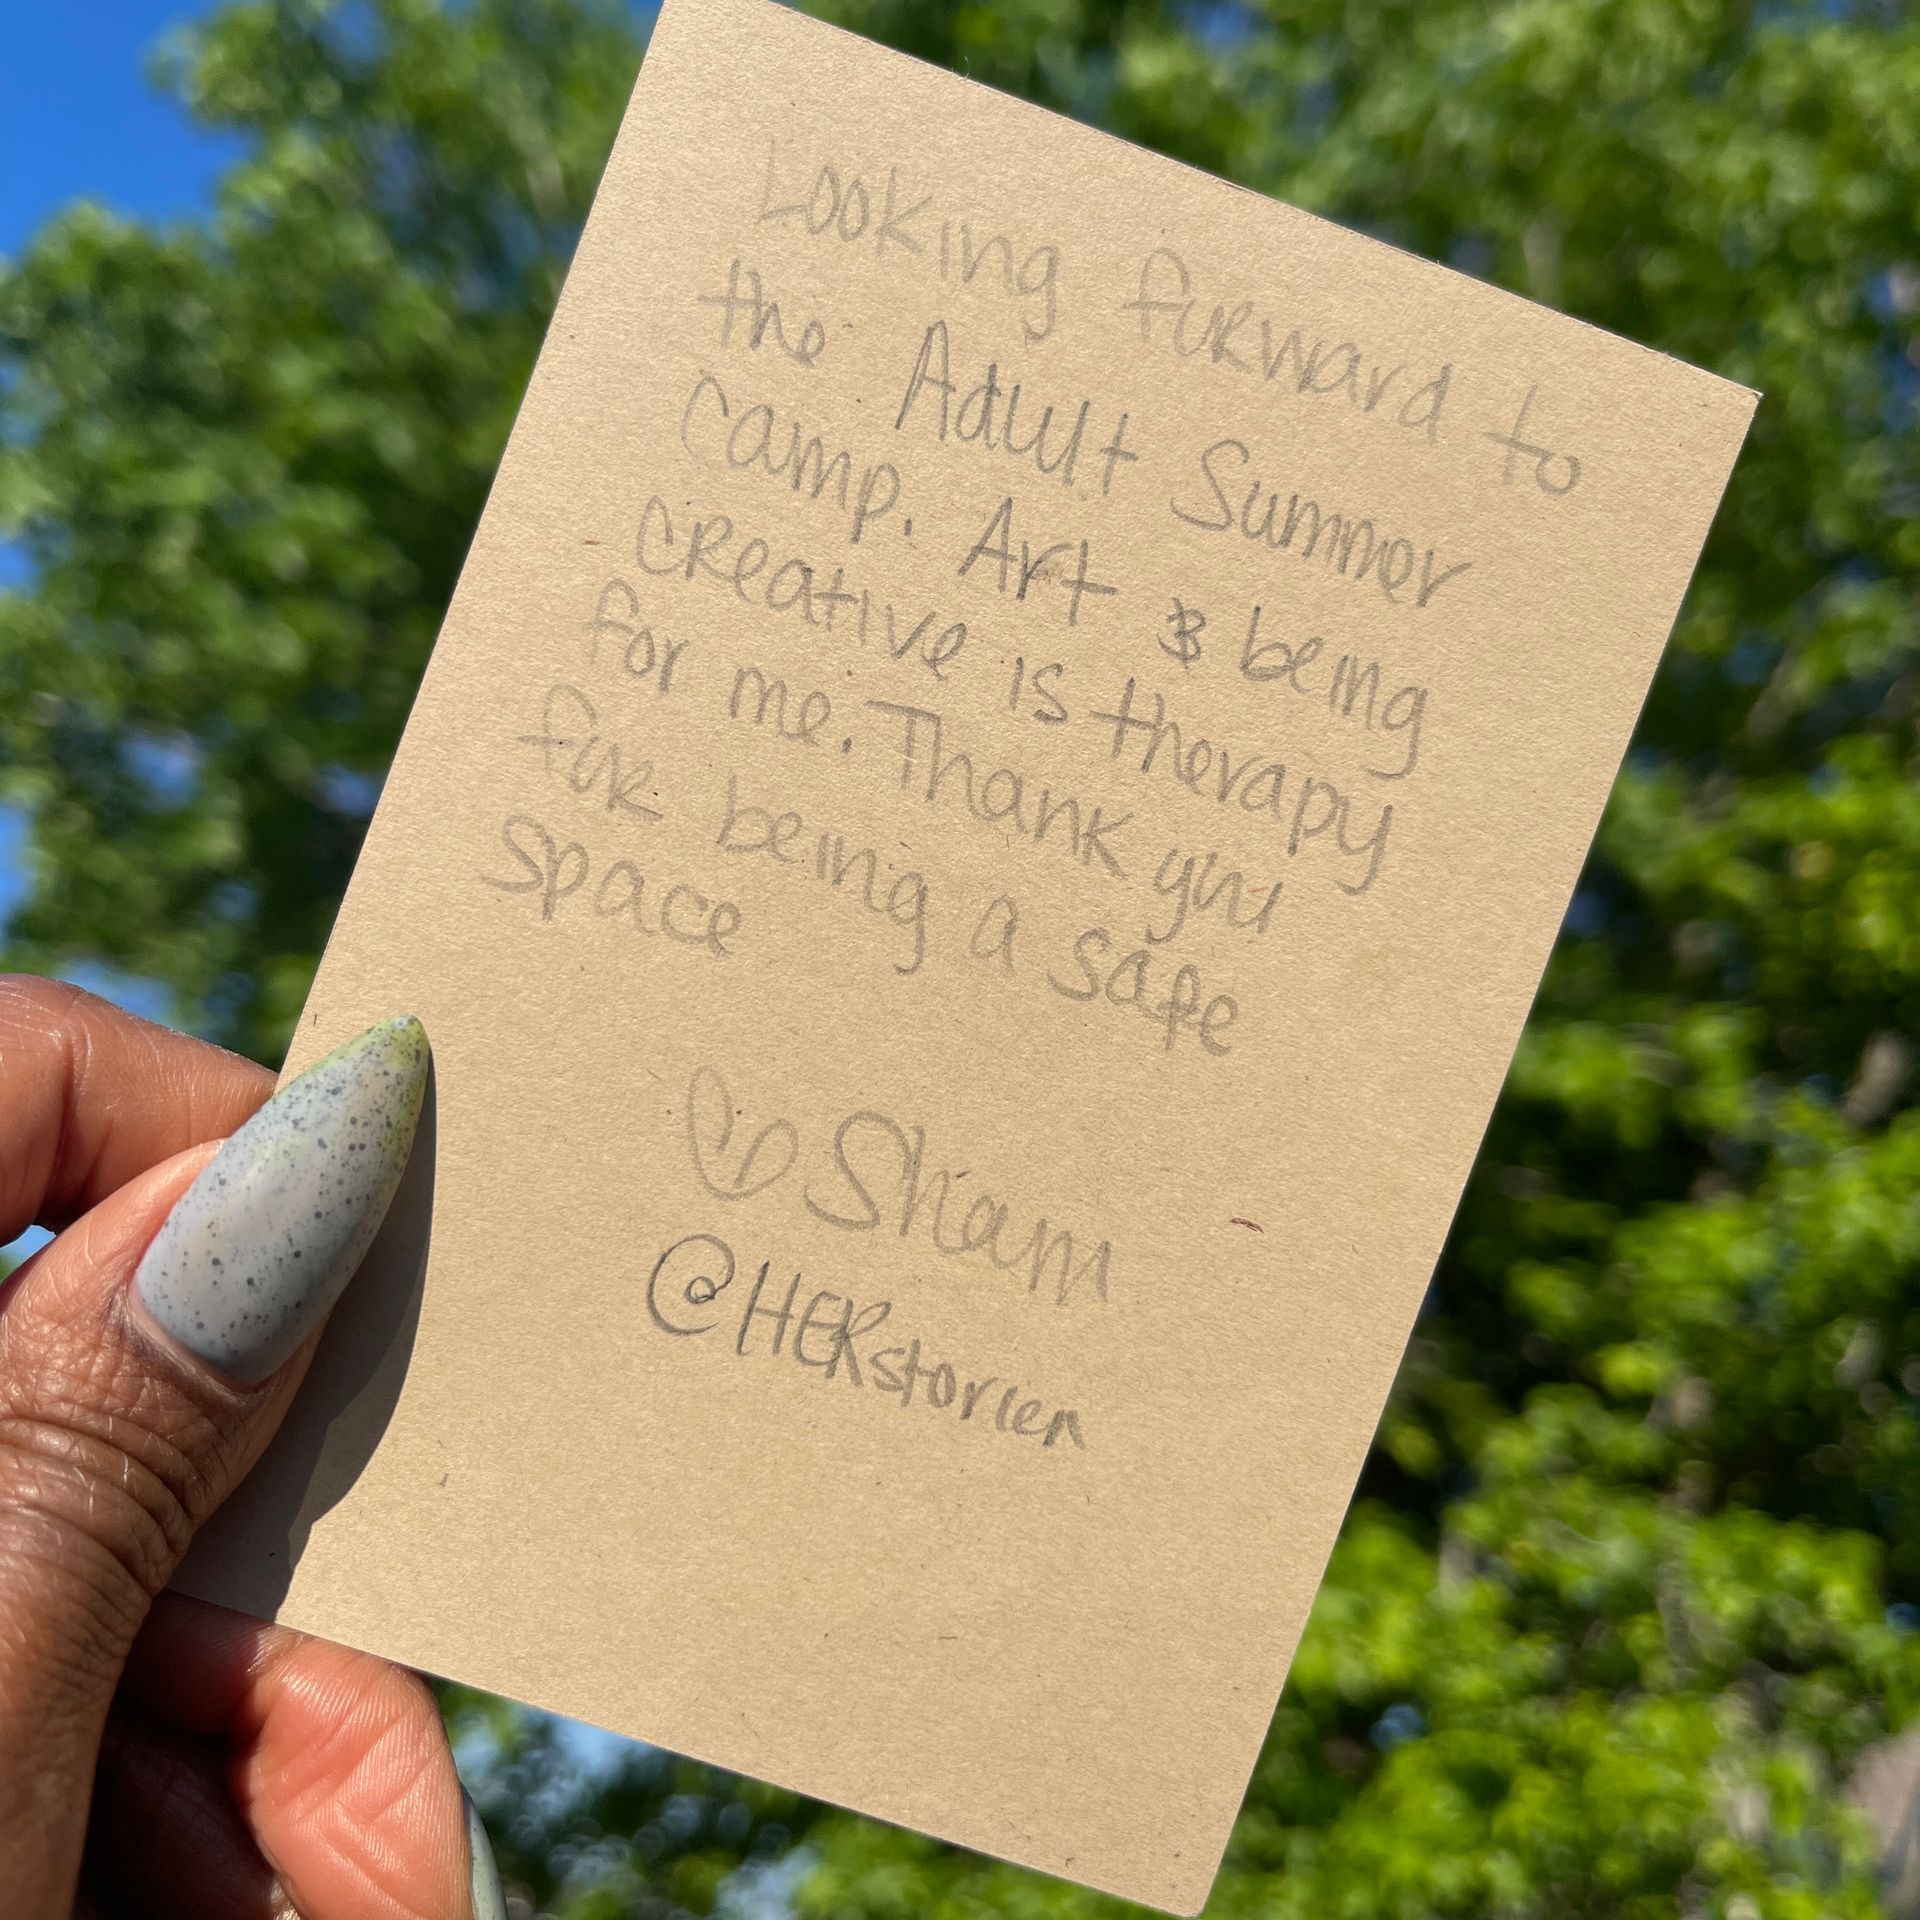 Looking forward to
the Adult Summer
camp. Art & being
creative is therapy
for me. Thank you
for being a safe
space
♡ Sham
@HERstorien